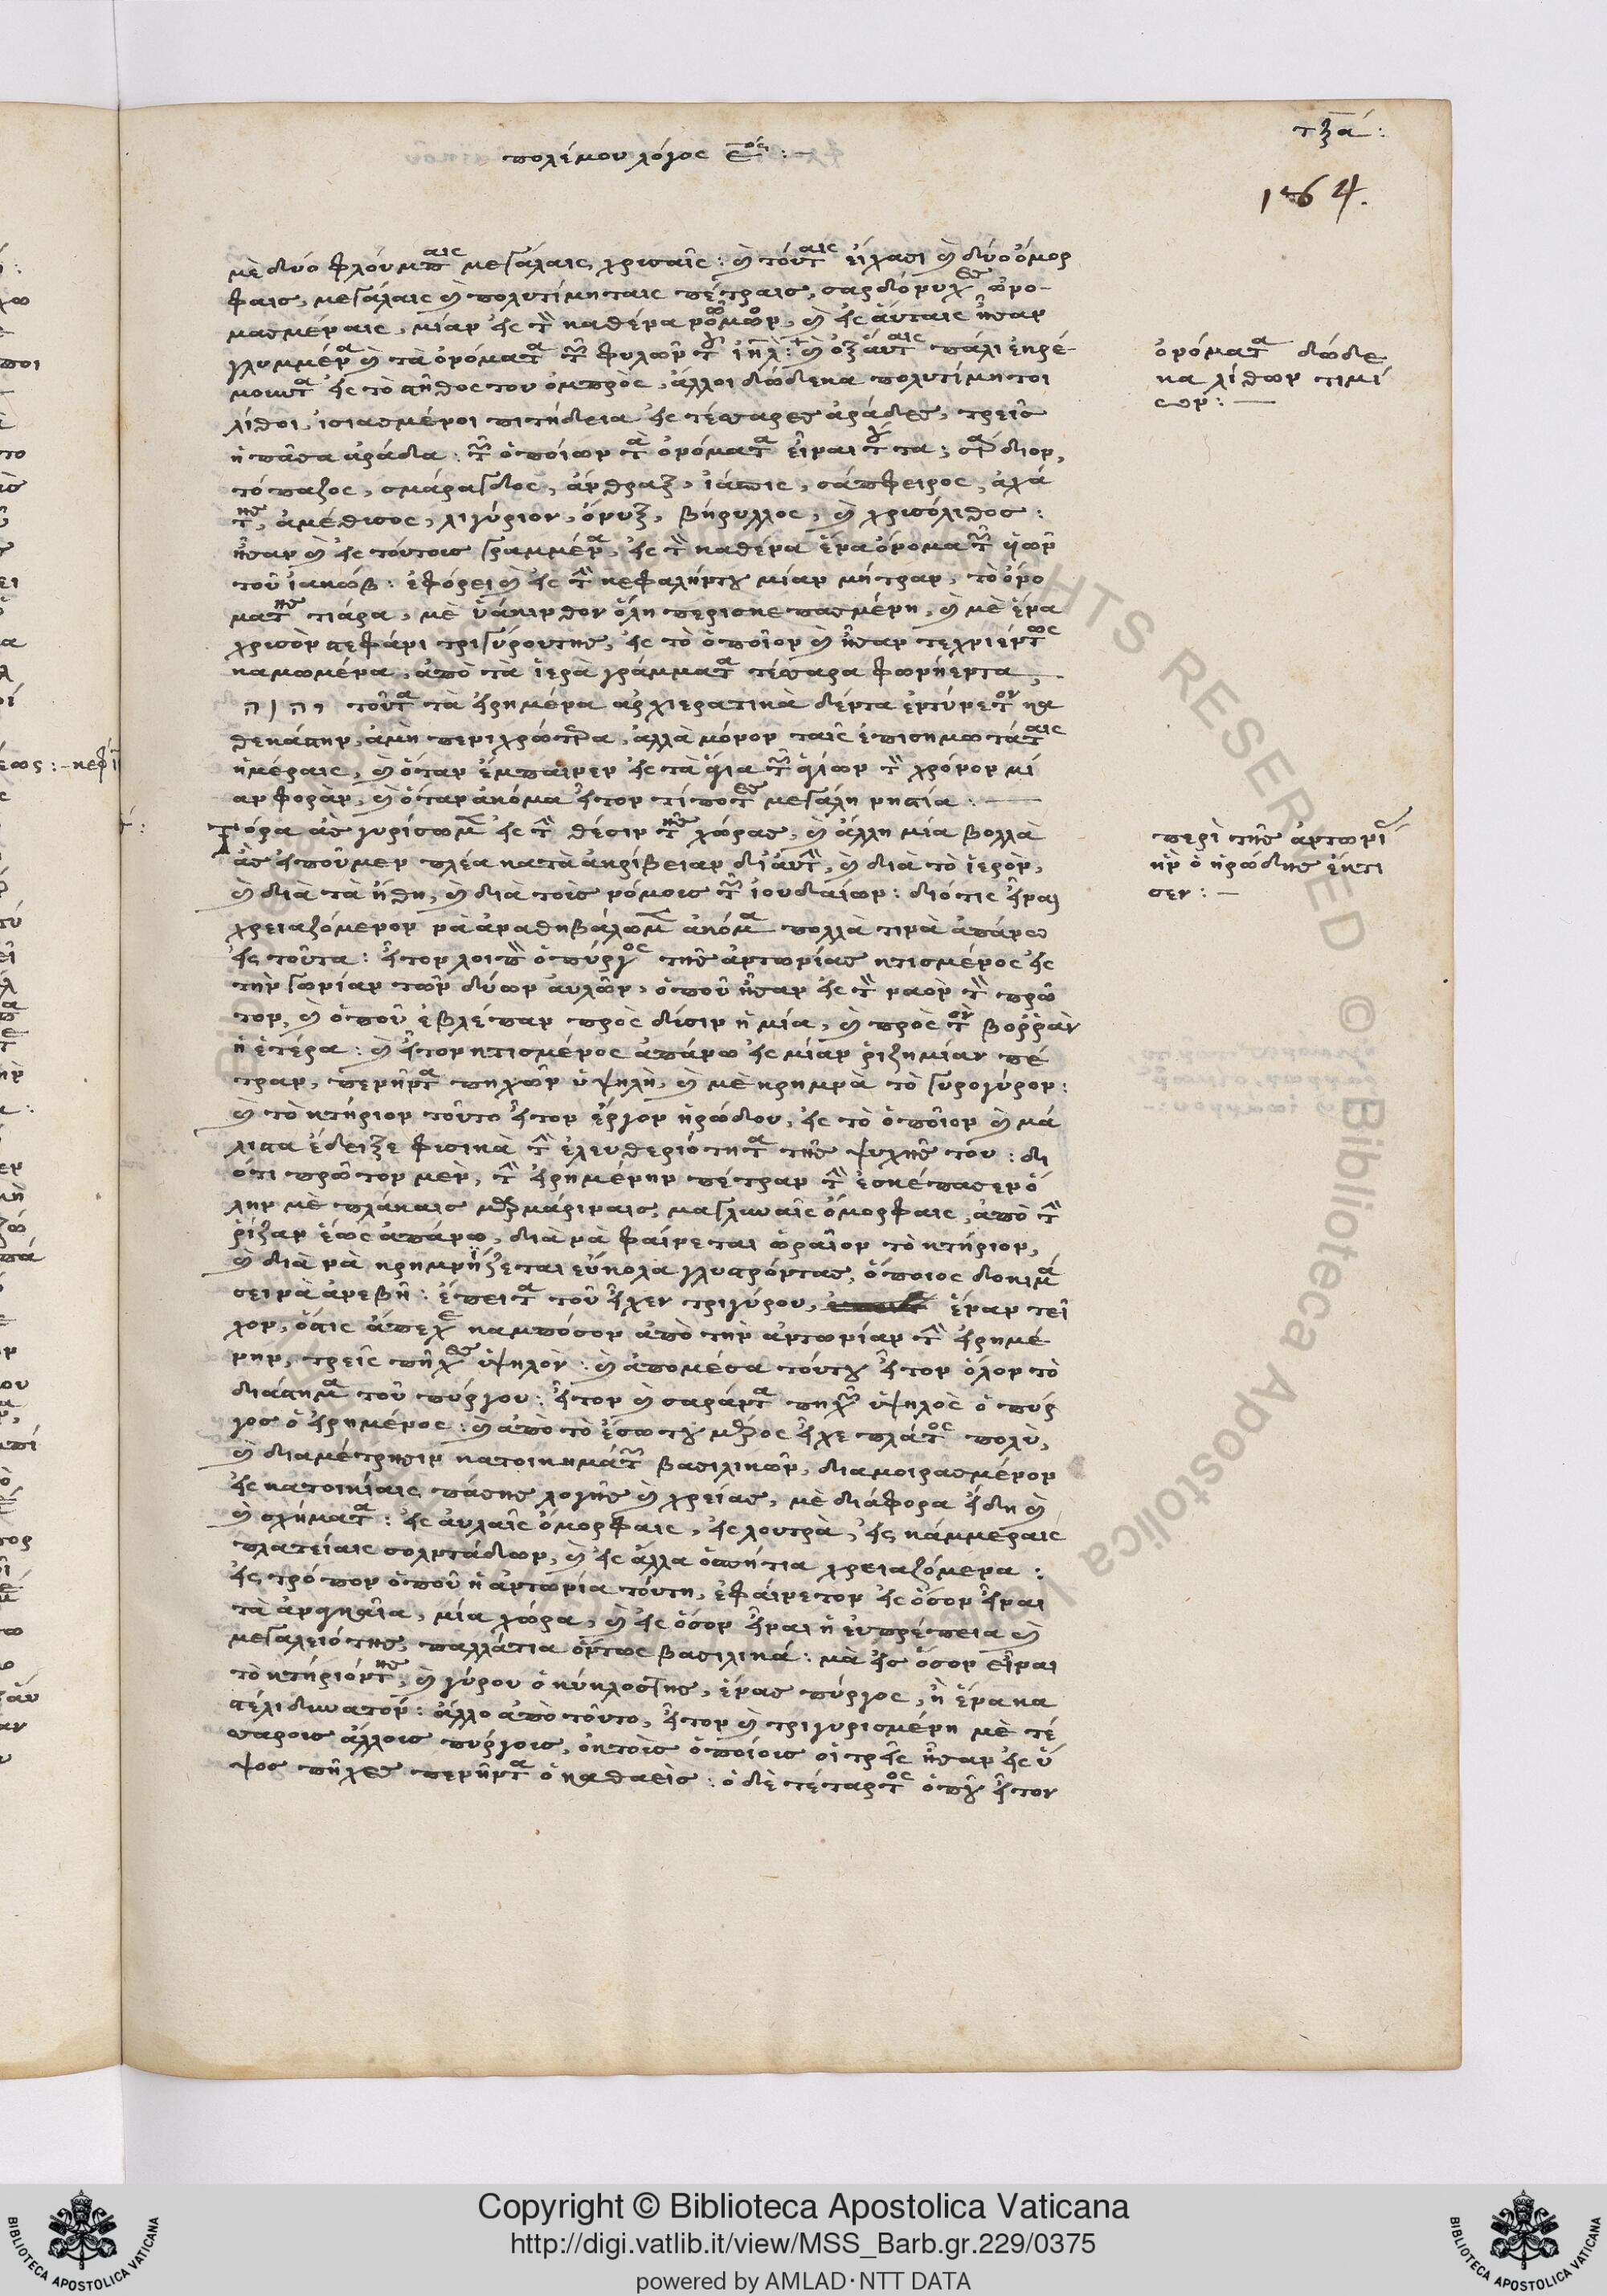 τξα´:
πολέμου λόγος ε^ος:—
164.
με δυό φλούμπαις μεγάλαις χρισαῖς: καὶ τούταις εἴχασι καὶ δύο ὄμορ
φαις, μεγάλαις καὶ πολυτίμηταις πέτραις, σαρδόνυχες ὠνο-
μασμέναις, μίαν εἰς τὴν καθένα νῶμον, καὶ εἰς αὐταῖς ἦσαν
γλυμμένα καὶ τὰ ὀνόματα τῶν φυλῶν τοῦ ἰηλ: + καὶ ὀξαύταις πάλι ἐκρέ-
μουντα εἰς τὸ στῆθος του ὀμπρὸς, ἄλλοι δώδεκα πολυτίμητοι
λίθοι, ἰσιασμένοι πιτήδεια εἰς τέσσαρες ἀράδες, τρεῖς
ἡ πᾶσα ἀράδα: τῶν ὁποίων τὰ ὀνόματα εἶναι τοῦτα; σάρδιον,
τόπαζος, σμάραγδος, ἄνθραξ, ἰάσπις, σάπφειρος, ἀχά
της, ἀμέθισος, λιγύριον, ὄνυξ, βήρυλλος, καὶ χρισόλιθος:
ἦσαν καὶ εἰς τούτοις γραμμένα, εἰς τὴν καθένα ἕνα ὄνομα τῶν ὑιῶν
τοῦ ἰακώβ: ἐφόρει καὶ εἰς τὴν κεφαλήντου μίαν μήτραν, τὸ ὀνο
μάτης τιάρα, μὲ ὑάκινθον ὅλη περισκεπασμένη, καὶ μὲ ἕνα
χρισὸν στεφάνι τριγύρουτης, εἰς τὸ ὁποῖον καὶ ἦσαν τεχνιέντως
καμωμένα, ἀπὸ τὰ ἱερὰ γράμματα τέσσαρα φωνήεντα,
יהוה τοῦτα τὰ εἰρημένα ἀρχιερατικὰ δέντα ἐντύνετον κα
θεκάστην, ἀμὴ περιχρώτερα, ἀλλὰ μόνον ταῖς ἐπισημωτάταις
ἡμέραις, καὶ ὅταν ἔμπαινεν εἰς τὰ ἅγια τῶν ἁγίων τὸν χρόνον μί
αν φορὰν, καὶ ὅταν ἀκόμα ἦτον τίποτες μεγάλη νηστία:—
Τόρα ἂς γυρίσωμεν εἰς τὴν θέσιν τῆς χώρας, καὶ ἄλλη μία βολλὰ
ἂς εἰποῦμεν πλέα κατὰ ἀκρίβειαν δι᾽ αὐτὴν, καὶ διὰ τὸ ἱερὸν,
καὶ διὰ τὰ ἤθη, καὶ διὰ τοὶς νόμοις τῶν ἰουδαίων: διότις εἶναι
χρειαζόμενον νὰ ἀναθηβάλωμεν ἀκόμα πολλὰ τινὰ ἀπάνω
εἰς τοῦτα: ἦτον λοιπὸν ὁ πύργος τῆς ἀντωνίας κτισμένος εἰς
τὴν γωνίαν τῶν δύων αὐλῶν, ὁποῦ ἦσαν εἰς τὸν ναὸν τὸν πρῶ
τον, καὶ ὁποῦ ἐβλέπαν πρὸς δίσιν ἡ μία, καὶ πρὸς τὸν βοῤῥὰν
ἡ ἑτέρα: καὶ ἦτον κτισμένος ἀπάνω εἰς μίαν ῥιζημίαν πέ
τραν, πενῆντα πηχῶν ὑψηλὴ, καὶ μὲ κρημνὰ τὸ γυρογύρον:
καὶ τὸ κτήριον τοῦτο ἦτον ἔργον ἡρώδου, εἰς τὸ ὁποῖον καὶ μά
λιστα ἔδειξε φισικὰ τὴν ἐλευθεριότητα τῆς ψυχῆς του: δι
ότι πρῶτον μεν, τὴν εἰρημένην πέτραν τὴν ἐσκέπασεν ὅ
λην μὲ πλάκαις μαρμάριναις, μαγλωαῖς ὄμορφαις, ἀπὸ τὴν
ῥίζαν ἕως ἀπάνω, διὰ νὰ φαίνεται ὡραῖον τὸ κτήριον,
καὶ διὰ νὰ κρημνίζεται εὔκολα γλυστρόντας, ὅποιος δοκιμά
σει νὰ ἀνεβῆ: ἔπειτα τοῦ εἶχεν τριγύρου, ἕναν τεῖ
χον, ὅστις ἀπεχε καμπόσον ἀπὸ τὴν ἀντωνίαν τὴν εἰρημέ
νην, τρεῖς πῆχες ὑψηλόν: καὶ ἀπομέσα τούτου ἦτον ὅλον τὸ
διάστημα τοῦ πύργου: ἦτον καὶ σαράντα πηχῶν ὑψηλὸς ὁ πύρ
γος ὁ εἰρημένος: καὶ ἀπὸ τὸ ἔσω του μέρος εἶχε πλάτος πολὺ,
καὶ διαμέτρησιν κατοικημάτων βασιλικῶν, διαμοιρασμένον
εἰς κατοικίαις πάσης λογῆς καὶ χρείας, μὲ διάφορα εἴδη καὶ
καὶ σχήματα: εἰς αὐλαῖς ὄμορφαις, εἰς λουτρὰ, εἰς κάμμεραις
πλατείαις σολντάδων, καὶ εἰς ἄλλα ὁσπήτια χρειαζόμενα:
εἰς τρόπον ὁποῦ ἡ ἀντωνία τούτη, ἐφαίνετον εἰς ὅσον εἶναι
τὰ ἀνσκηαῖα, μία χώρα, καὶ εἰς ὅσον εἶναι ἡ εὐπρέπεια καὶ
μεγαλειότης, παλλάτια ὄντως βασιλικά: μὰ εἰς ὅσον εἶναι
τὸ κτήριόντης, καὶ γύρου ὁ κύκλοστης, ἕνας πύργος, ἢ ἕνα κα
στέλι δυνατόν: ἄλλο ἀπὸ τοῦτο, ἦτον καὶ τριγυρισμένη μὲ τέ
σσαροις ἄλλοις πύργοις, ἐκ τοὶς ὁποίοις οἱ τρεῖς ἦσαν εἰς ὕ
ψος πῆχες πενῆντα ὁ καθαεὶς: ὁ δὲ τέταρτος ὁποῦ ἦτον
ὀνόματα δώδε
κα λίθων τιμί
ων:—
περὶ τῆς ἀντωνί
ἣν ὁ ἡρώδης ἔκτι
σεν:—
Copyright © Biblioteca Apostolica Vaticana
http://digi.vatlib.it/view/MSS_Barb.gr.229/0375
powered by AMLAD·NTT DATA
BIBLIOTECA APOSTOLICA VATICANA
BIBLIOTECA APOSTOLICA VATICANA